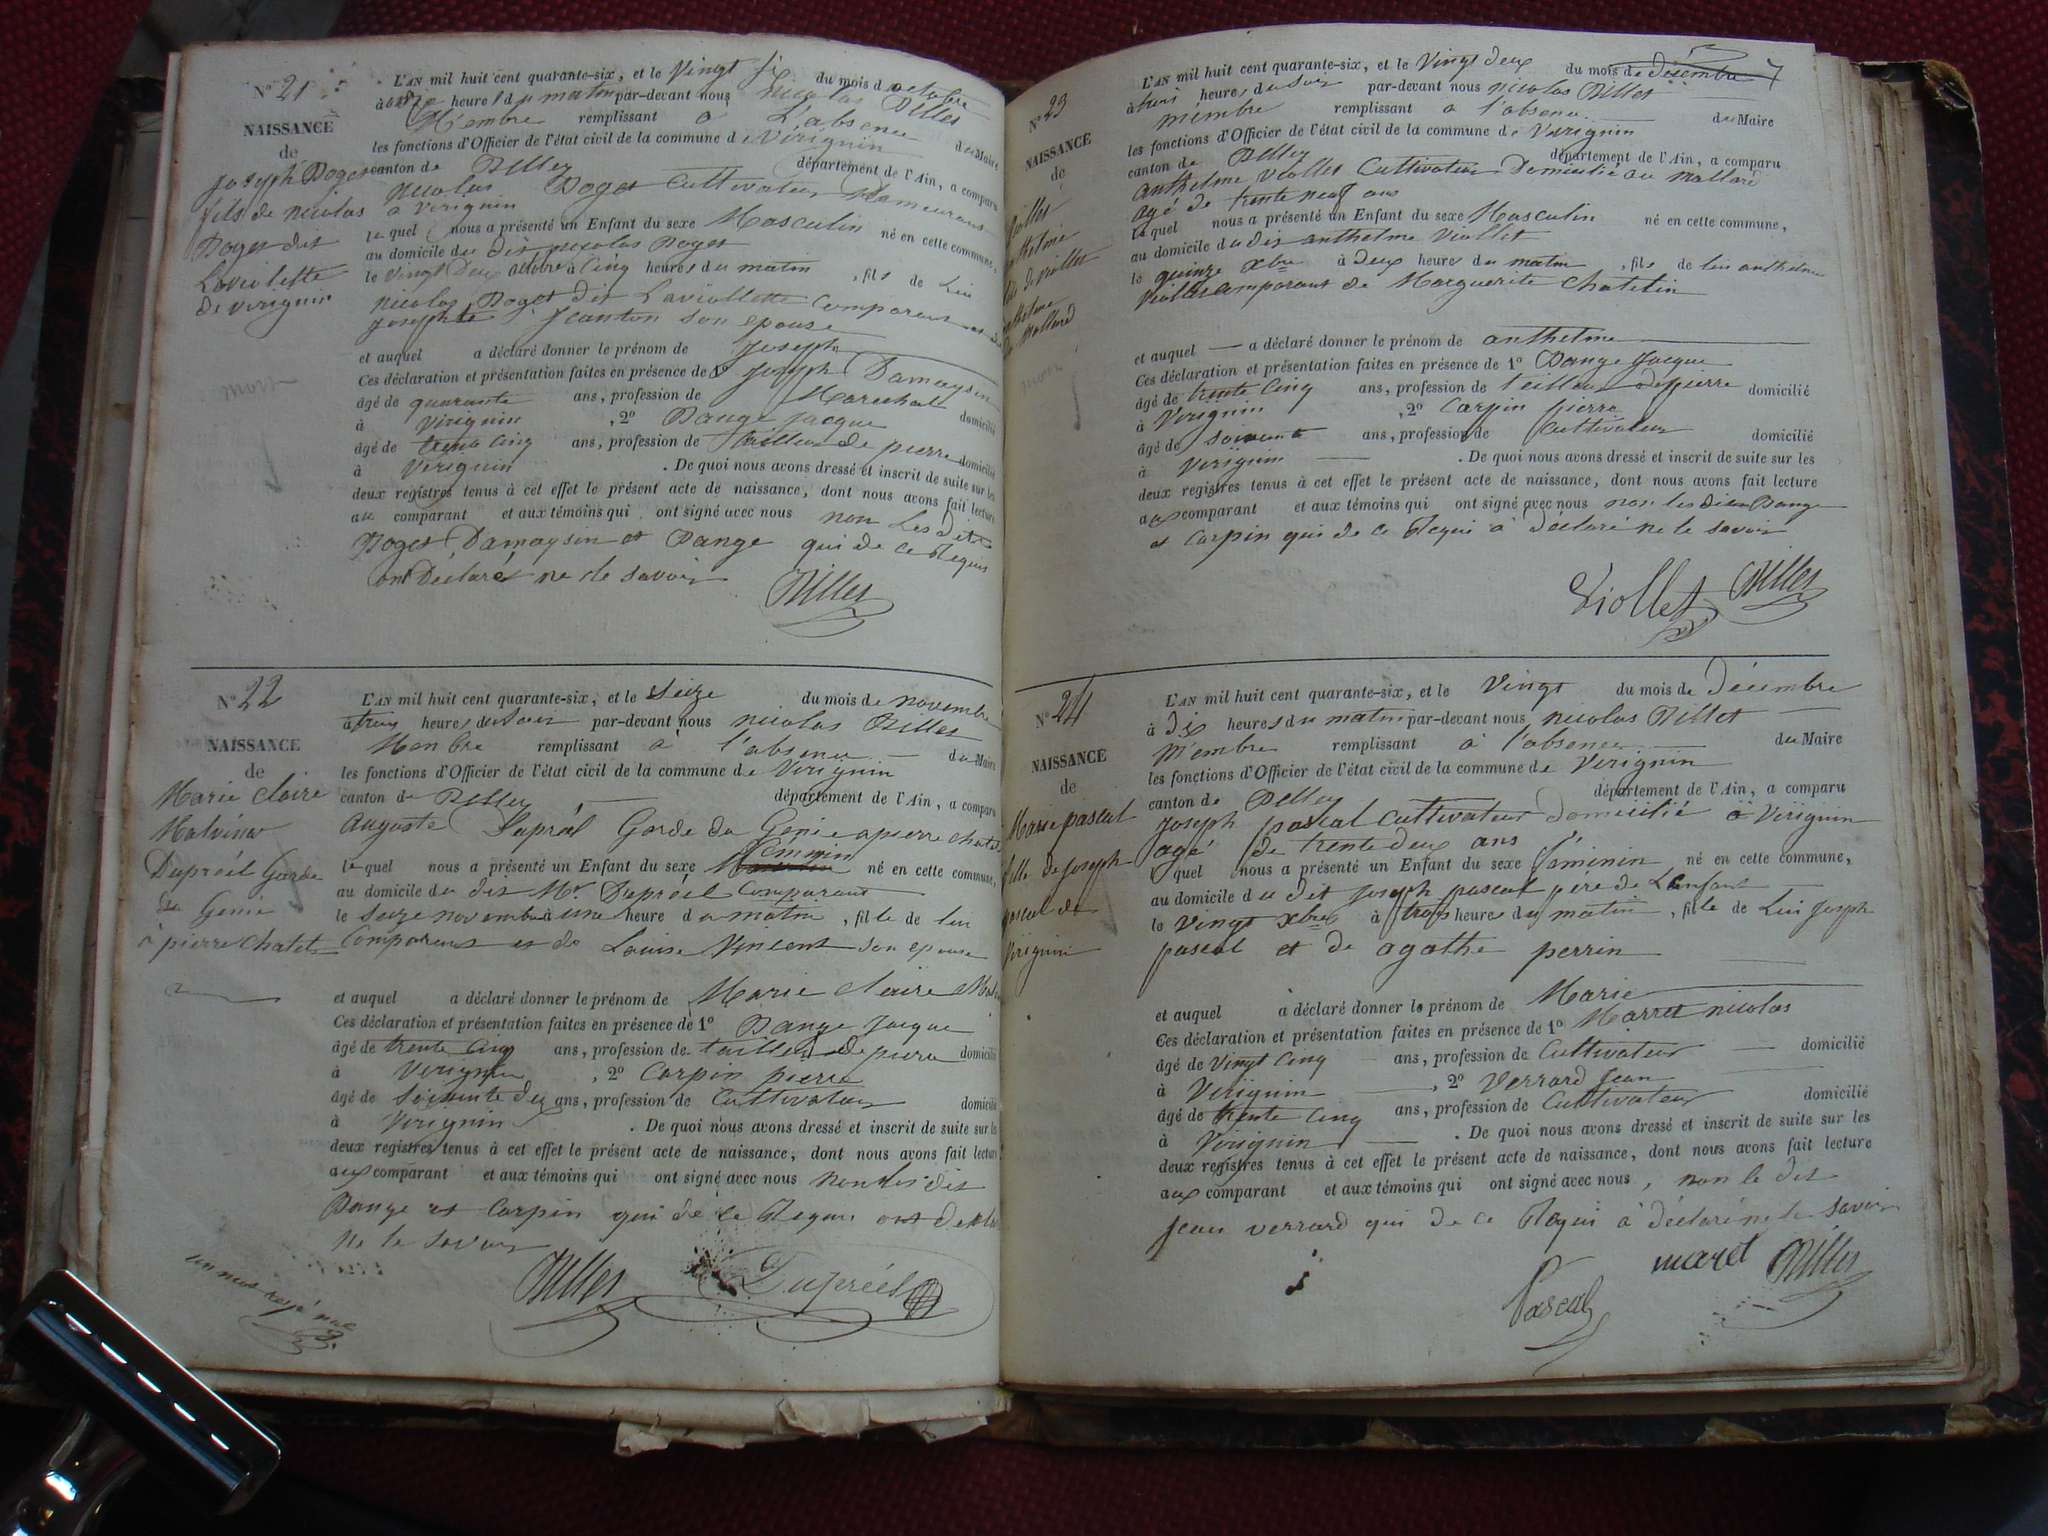 N° 21
NAISSANCE
de
Joseph Doges
fils de nicolas
Doges dit
Laviolette
de virignin
L'AN mil huit cent quarante-six, et le Vingt six du mois d octobre
à onze heures du matin par-devant nous nicolas Billet
Membre remplissant a L'absence du Maire
les fonctions d'Officier de l'état civil de la commune de Virignin
canton de Belley département de l'Ain, a comparu
nicolas Doges Cultivateur Demeurant
a virignin
lequel nous a présenté un Enfant du sexe Masculin né en cette commune,
au domicile du dit nicolas Doges
le Vingt Deux octobre à Cinq heures du matin, fils de Lui
nicolas Doges dit Laviollette Comparant et de
Josephte Jeanton son epouse
et auquel a déclaré donner le prénom de Joseph
Ces déclaration et présentation faites en présence de 1° Joseph Damaysin
âgé de quarante ans, profession de Marechal domicilié
à Virignin, 2° Dange Jacque
âgé de trente Cinq ans, profession de tailleur de pierre domicilié
à Virignin. De quoi nous avons dressé et inscrit de suite sur les
deux registres tenus à cet effet le présent acte de naissance, dont nous avons fait lecture
au comparant et aux témoins qui ont signé avec nous non Les Dits
Doges Damaysin et Dange qui de ce Requis
ont Déclarés ne le savoir
Billet
N° 22
NAISSANCE
de
Marie Claire
Malvina
Dupréel Garde
du Genie
à pierre Chatel
L'AN mil huit cent quarante-six, et le seize du mois de novembre
à trois heures du soir par-devant nous nicolas Billet
Menbre remplissant à l'absence du Maire
les fonctions d'Officier de l'état civil de la commune de Virignin
canton de Belley département de l'Ain, a comparu
Auguste Dupréel Garde du Genie a pierre chatel
lequel nous a présenté un Enfant du sexe Feminin né en cette commune,
au domicile du dit Mr Dupréel Comparant
le seize novembre à une heure du matin, fille de lui
Comparant et de Louise Vincent son epouse
et auquel a déclaré donner le prénom de Marie Claire
Ces déclaration et présentation faites en présence de 1° Dange Jacque
âgé de trente Cinq ans, profession de tailleur de pierre domicilié
à Virignin, 2° Carpin pierre
âgé de Soixante ans, profession de Cultivateur domicilié
à Virignin. De quoi nous avons dressé et inscrit de suite sur les
deux registres tenus à cet effet le présent acte de naissance, dont nous avons fait lecture
aux comparant et aux témoins qui ont signé avec nous non les dit
Dange et Carpin qui de ce Requis ont
ne le savoir
un mot rayé nul
Billet Dupréel
N° 23
NAISSANCE
de
L'AN mil huit cent quarante-six, et le Vingt deux du mois de décembre
à trois heures du soir par-devant nous nicolas Billet
membre remplissant a l'absence du Maire
les fonctions d'Officier de l'état civil de la commune de Virignin
canton de Belley département de l'Ain, a comparu
anthelme Viollet Cultivateur Domicilié au mallard
agé de trente neuf ans
lequel nous a présenté un Enfant du sexe Masculin né en cette commune,
au domicile du dit anthelme Viollet
le quinze xbre à deux heures du matin, fils de lui anthelme
Viollet Comparant de Marguerite Chatelin
et auquel a déclaré donner le prénom de anthelme
Ces déclaration et présentation faites en présence de 1° Dange Jacque
âgé de trente Cinq ans, profession de tailleur de pierre domicilié
à Virignin, 2° Carpin pierre
âgé de soixante ans, profession de Cultivateur domicilié
à Virignin. De quoi nous avons dressé et inscrit de suite sur les
deux registres tenus à cet effet le présent acte de naissance, dont nous avons fait lecture
aux comparant et aux témoins qui ont signé avec nous non les dits Dange
et Carpin qui de ce Requi a déclaré ne le savoir
Viollet Billet
N° 24
NAISSANCE
de
Marie pascal
fille de Joseph
pascal de
Virignin
L'AN mil huit cent quarante-six, et le Vingt du mois de Décembre
à dix heures du matin par-devant nous nicolas Billet
Membre remplissant à l'absence du Maire
les fonctions d'Officier de l'état civil de la commune de Virignin
canton de Belley département de l'Ain, a comparu
Joseph pascal Cultivateur domicilié à Virignin
agé de trente deux ans
lequel nous a présenté un Enfant du sexe féminin né en cette commune,
au domicile du dit Joseph pascal père de L'enfant
le Vingt xbre à trois heures du matin, fille de Lui Joseph
pascal et de agathe perrin
et auquel à déclaré donner le prénom de Marie
Ces déclaration et présentation faites en présence de 1° Marret nicolas
âgé de Vingt Cinq ans, profession de Cultivateur domicilié
à Virignin, 2° Verrard Jean
âgé de trente Cinq ans, profession de Cultivateur domicilié
à Virignin. De quoi nous avons dressé et inscrit de suite sur les
deux registres tenus à cet effet le présent acte de naissance, dont nous avons fait lecture
aux comparant et aux témoins qui ont signé avec nous, non le dit
Jean verrard qui de ce Requi à déclaré ne le savoir
Pascal maret Billet